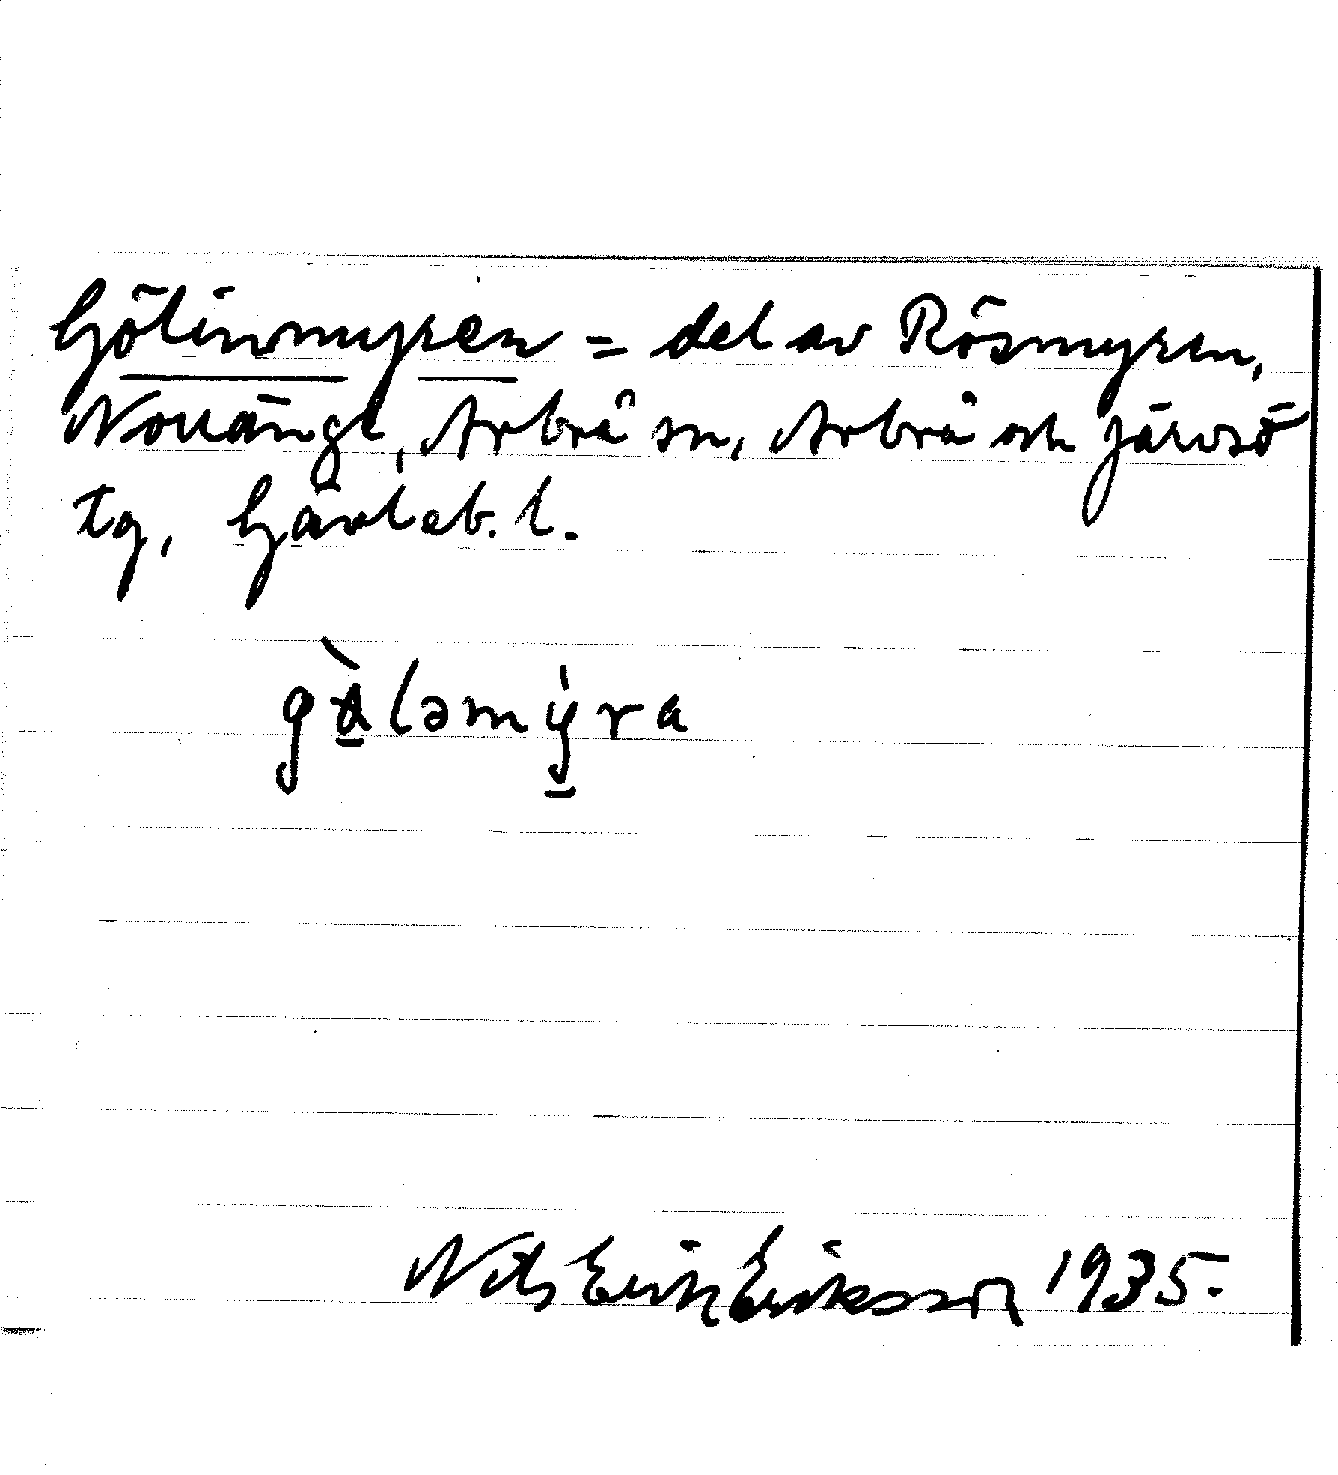 Gölinmyren = del av Rösmyren,
Norränge, Arbrå sn, Arbrå och Järvsö
tg, Gävleb. l.
gὰləmy̍ra
Nils Erik Eriksson 1935.